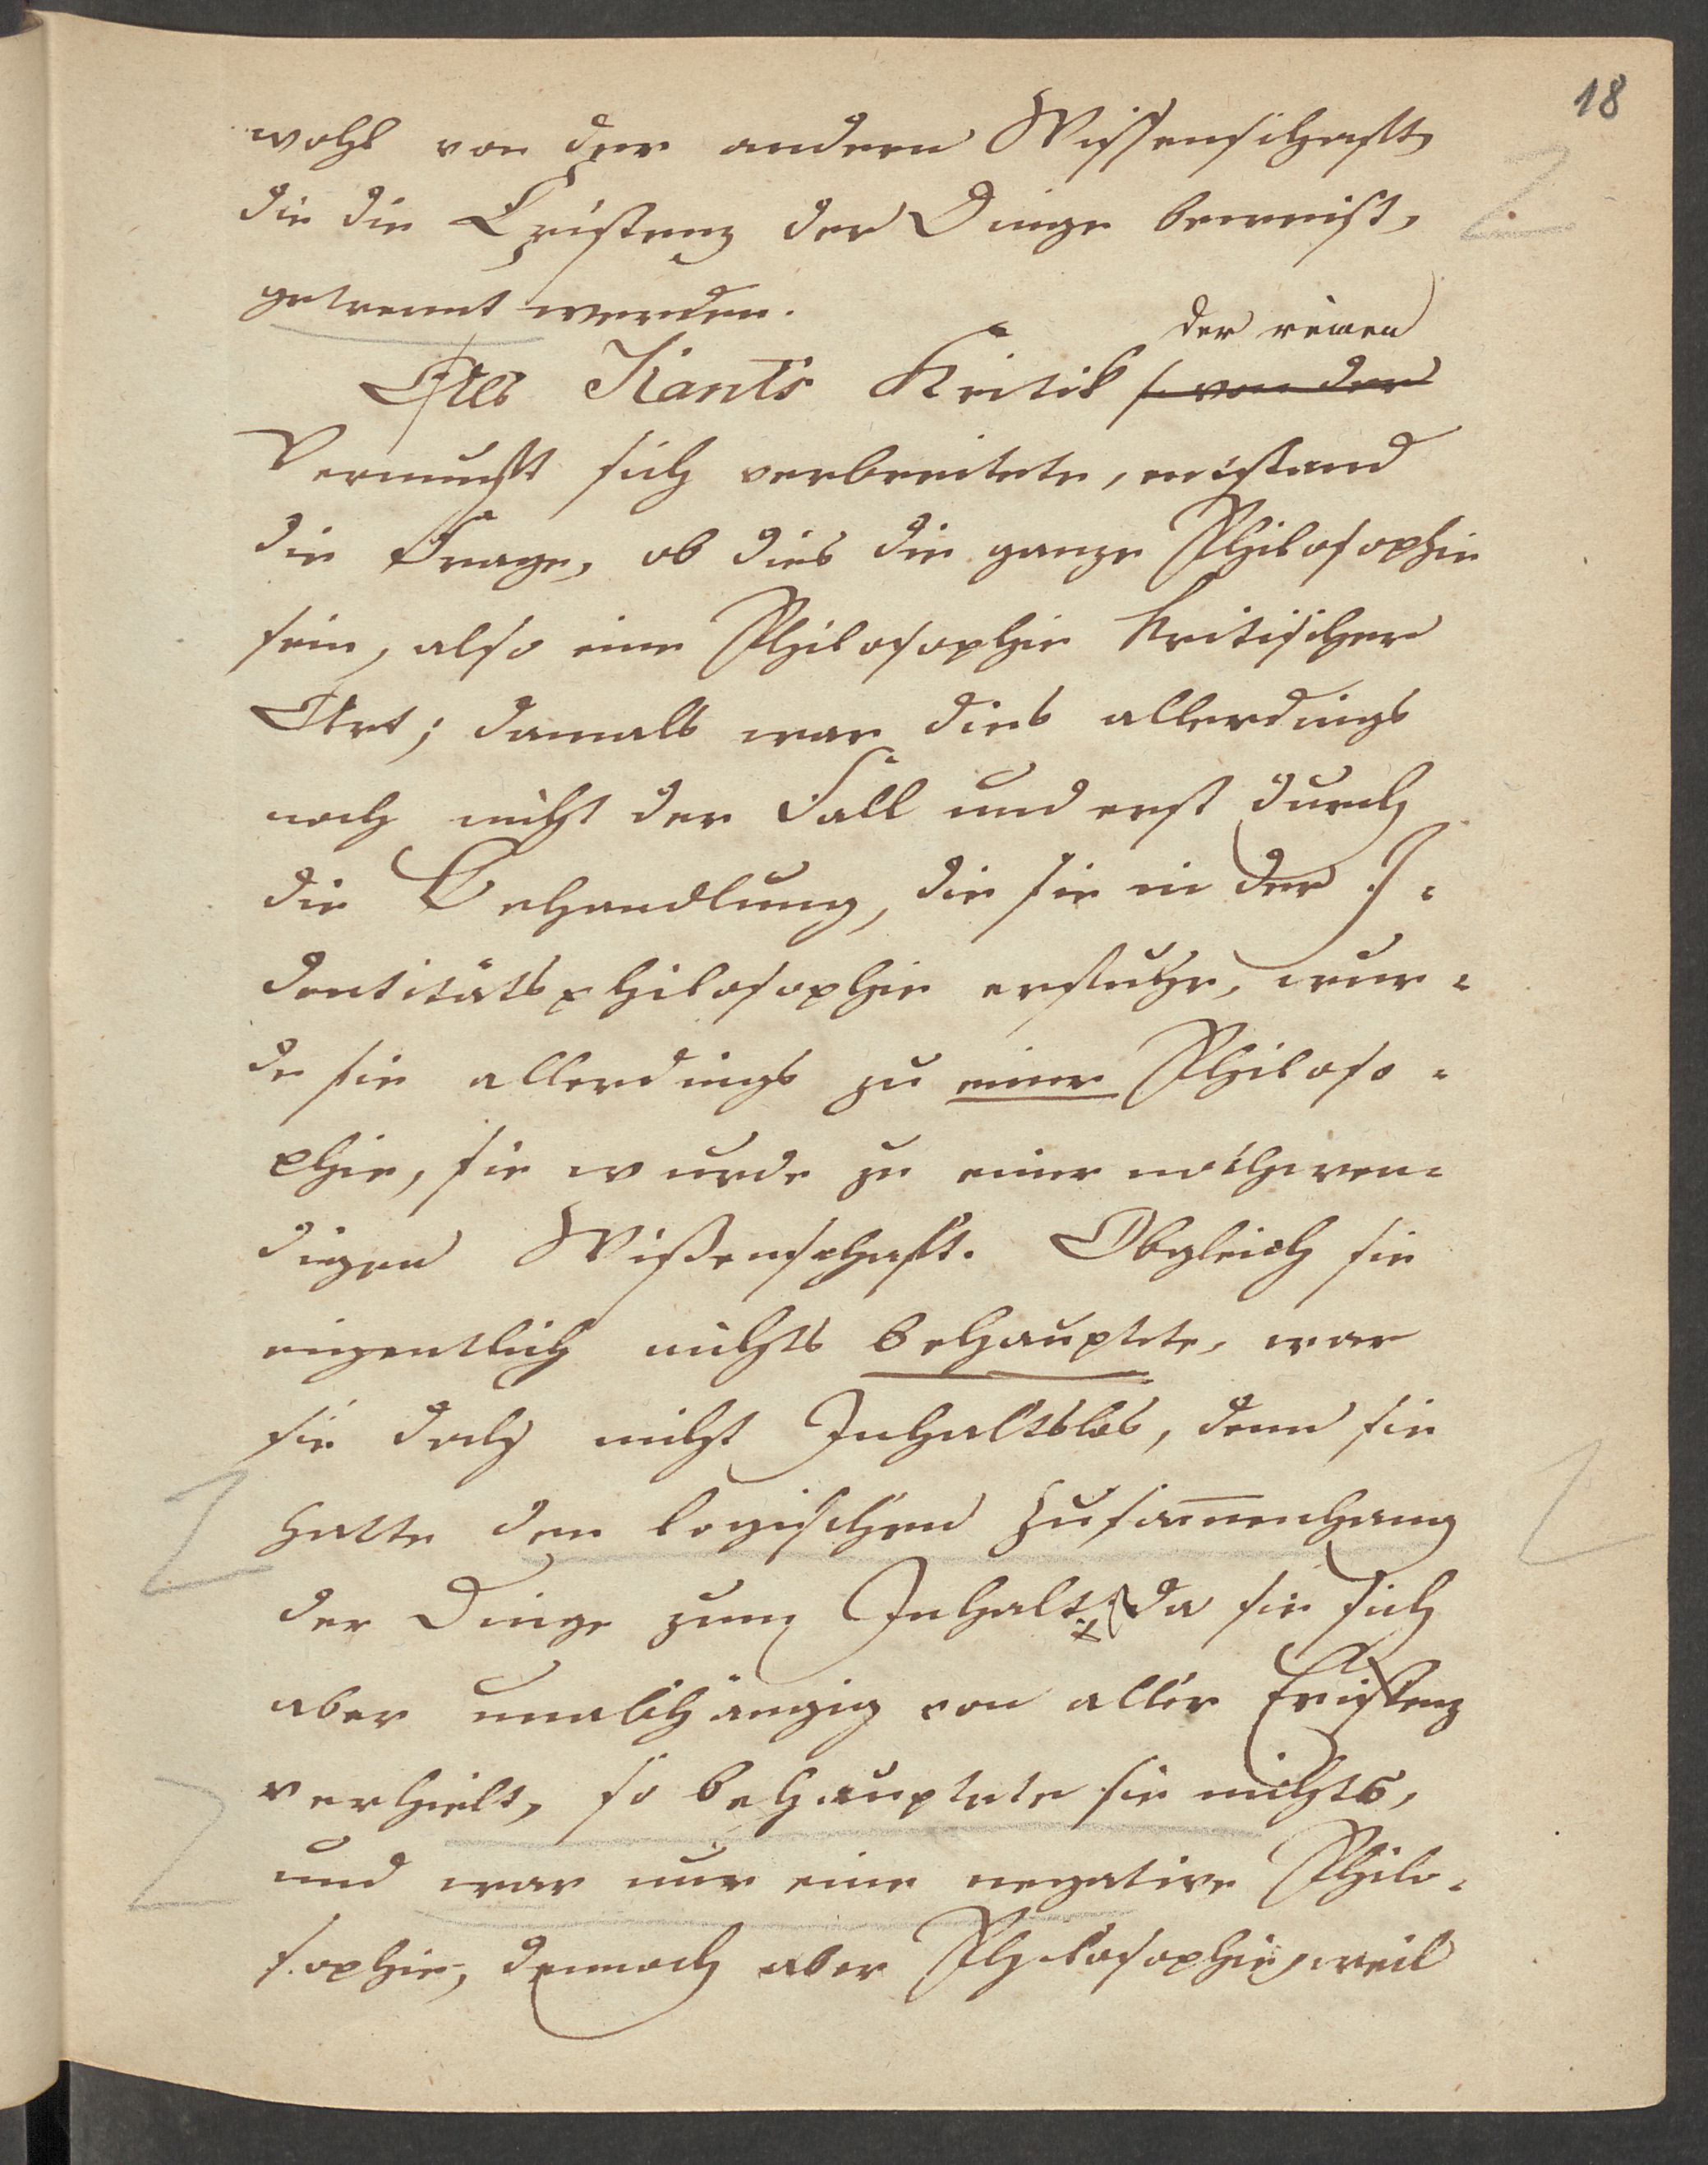 18
wohl von der andern Wissenschaft,
die die Existenz der Dinge beweist,
getrennt werden.
der reinen
Als Kants Kritik von der
Vernunft sich verbreitete, entstand
die Frage, ob dies die ganze Philosophie
sein, also eine Philosophie kritischer
Art; damals war dies allerdings
noch nicht der Fall und erst durch
die Behandlung, die sie in der I-
dentitätsphilosophie erfuhr, wur-
de sie allerdings zu einer Philoso-
phie, sie wurde zu einer nothwen-
digen Wißenschaft. Obgleich sie
eigentlich nichts behauptete, war
sie doch nicht Inhaltslos, denn sie
hatte den logischen Zusam̅enhang
der Dinge zum Inhalt; da sie sich
aber unabhängig von aller Existenz
verhielt, so behauptete sie nichts,
und war nur eine negative Philo-
sophie, dennoch aber Philosophie, weil